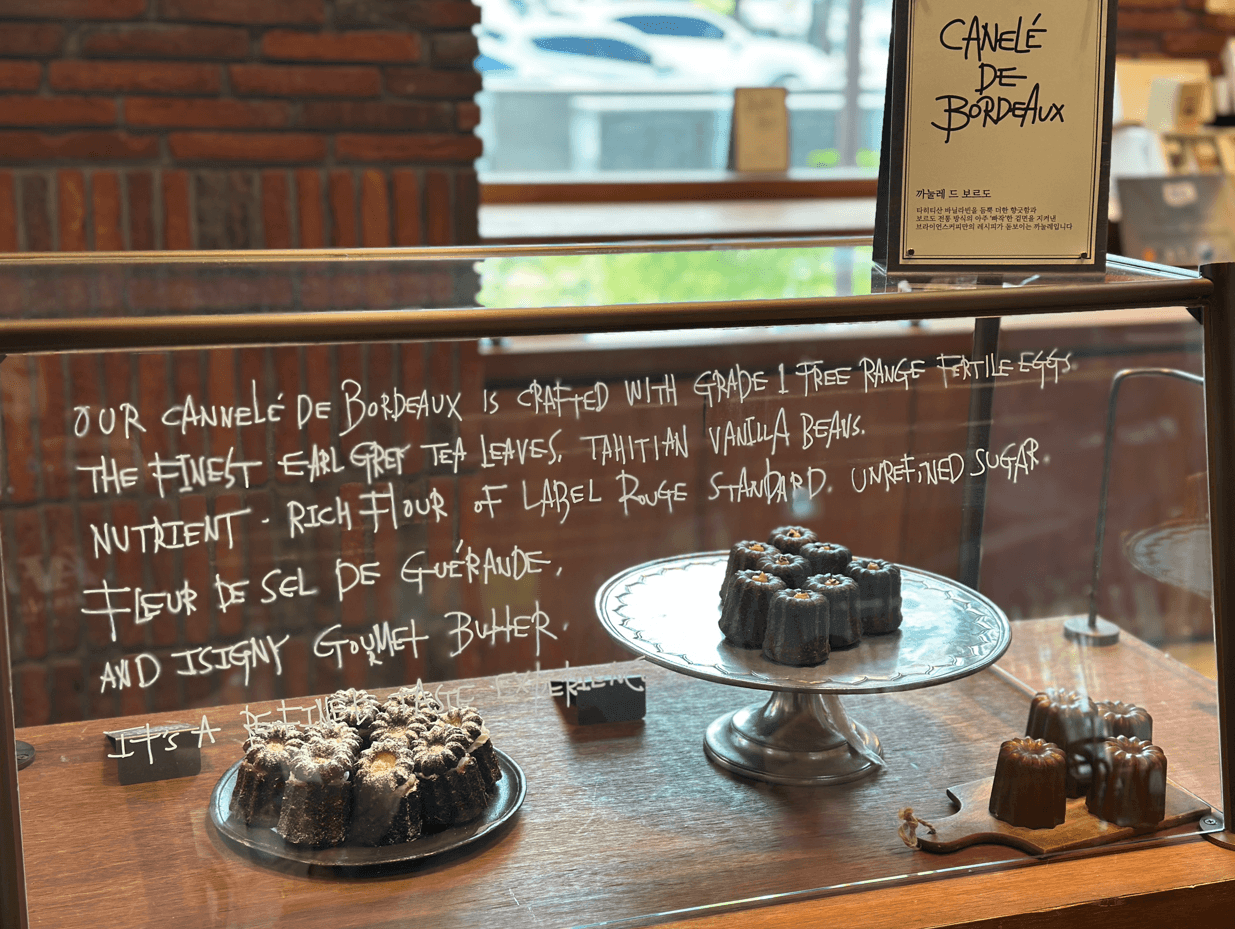 CANELÉ
DE
BORDEAUX
까눌레 드 보르도
타히티산 바닐라빈을 듬뿍 더한 향긋함과
보르도 전통 방식의 아주 '빠작'한 겉면을 지켜낸
브라이언스커피만의 레시피가 돋보이는 까눌레입니다
OUR CANNELÉ DE BORDEAUX IS CRAFTED WITH GRADE 1 FREE RANGE FERTILE EGGS
THE FINEST EARL GREY TEA LEAVES, TAHITIAN VANILLA BEANS.
NUTRIENT - RICH FLOUR OF LABEL ROUGE STANDARD. UNREFINED SUGAR.
FLEUR DE SEL DE GUÉRANDE,
AND ISIGNY GOURMET BUTTER.
IT'S A REFINED TASTE EXPERIENCE